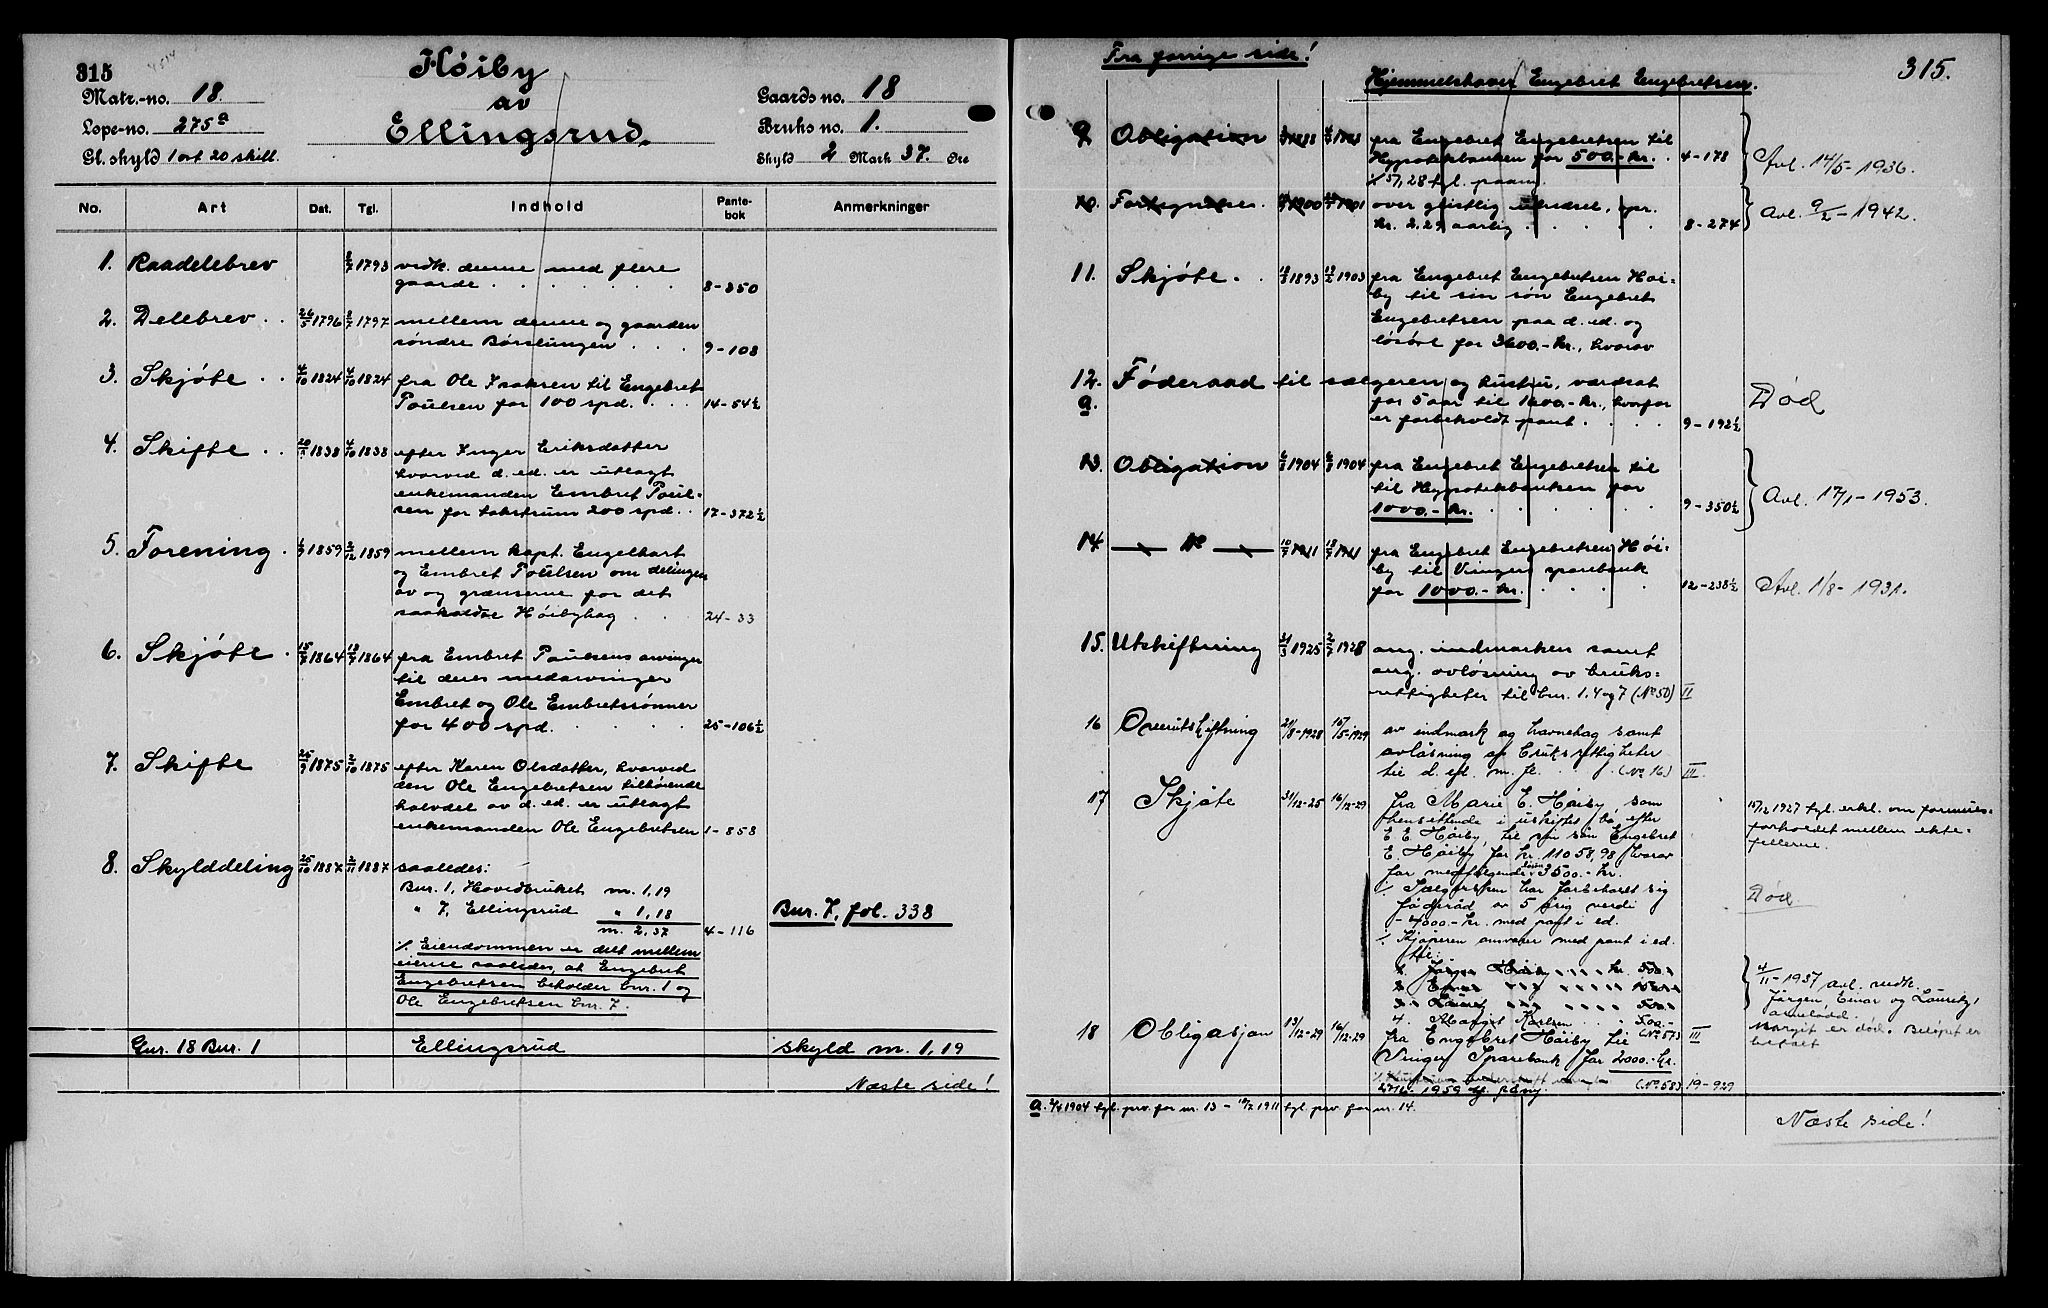 315
Høiby
av
Ellingsrud.
Matr.-no. 18.
Løpe-no. 275a
Gl. skyld 1 ort 20 skill.
Gaards no. 18
Bruks no. 1.
Skyld 2 Mark 37. Øre
No. Art Dat. Tgl. Indhold Pante-bok Anmerkninger
1. Raadelebrev 1793 vedk. denne med flere
gaarde . . . . . . . 8-350
2. Delebrev . . 26/5 1796 1797 mellem denne og gaarden
søndre Børslungen . . . 9-108
3. Skjøte . . 4/10 1824 4/10 1824 fra Ole Isaksen til Engebret
Poulsen for 100 spd. . . . 14-54½
4. Skifte . . 1838 4/10 1838 efter Inger Eriksdatter
hvorved d. ed. er utlagt
enkemanden Embret Poul-
sen for takstsum 200 spd. . . 17-372½
5. Forening . 1859 2/12 1859 mellem kapt. Engelhart
og Embret Poulsen om delingen
av og grænserne for det
saakaldte Høibyhag . . . 24-33
6. Skjøte . 15/7 1864 18/7 1864 fra Embret Paulsens arvinger
til deres medarvinger
Embret og Ole Embretssønner
for 400 spd. . . . . 25-106½
7. Skifte 25/9 1875 2/10 1875 efter Karen Olsdatter, hvorved
den Ole Engebretsen tilhørende
halvdel av d. ed. er utlagt
enkemanden Ole Engebretsen 1-858
8. Skylddeling 25/10 1887 2/11 1887 saaledes:
Bnr. 1, Hovedbruket m. 1,19
" 7, Ellingsrud " 1,18 Bnr. 7, fol. 338
m. 2,37 4-116
%. Eiendommen er delt mellem
eierne saaledes, at Engebret
Engebretsen beholder bnr. 1 og
Ole Engebretsen bnr. 7.
Gnr. 18 Bnr. 1 Ellingsrud skyld m. 1,19
Næste side!
Fra forrige side!
315.
Hjemmelshaver Engebret Engebretsen.
9 Obligation fra Engebret Engebretsen til
Hypotekbanken for 500.- kr. . 4-178 Avl. 14/5-1936.
10. 1900 1901 over geistlig utredsel, opr.
kr. 2,29 aarlig . . . . . 8-274 Avl. 9/2-1942.
11. Skjøte . . 1893 1903 fra Engebret Engebretsen Høi-
by til sin søn Engebret
Engebretsen paa d. ed. og
løsøre for 3600.- kr., hvorav
12. Føderaad til sælgeren og hustru, værdsat
a. for 5 aar til 1600.- kr., hvorfor Død
er forbeholdt pant . . . . 9-192½
13. Obligation 1904 1904 fra Engebret Engebretsen til
til Hypotekbanken for
1000.- kr. . . . . . 9-350½ Avl. 17/1-1953.
14. 1911 1911 fra Engebret Engebretsen Høi-
by til Vinger sparebank
for 1000.- kr. . . . . 12-238½ Avl. 1/8-1931.
15. Utskiftning 1925 1928 ang. indmarken samt
ang. avløsning av bruks-
rettigheter til bnr. 1.4 og 7 (No 50) II
16 Overutskiftning 21/8-1928 16/5-1929 av indmark og havnehag samt
avløsning af bruksrettigheter
til d. ed. m. fl. . . . (No 16) III
17 Skjøte 31/12-25 16/12-29 fra Marie E. Høiby, som
hensittende i uskiftet bo efter
E. E. Høiby, til sin søn Engebret
E. Høiby, for kr. 11058,98 hvorav
for medfølgende løsøre 3500.- kr.
12/12 1927 tgl. erkl. om formues-
forholdet mellem ekte-
fellerne.
%. Sælgersken har forbeholdt sig
føderåd av 5 årig verdi Død
- 4000.- kr. med pant i ed.
%. Kjøperen ansvarer med pant i ed.
til:
1. Jørgen Høiby kr. 500.-
2. Einar
3. Laurit 500.-
4. Margit Karlsen . . . 500.- (No 573) III
4/11-1937 avl. vedk.
Jørgen, Einar og Lauritz,
arvelodd.
Margit er død. Beløpet er
betalt
18 Obligasjon 13/12-29 16/12-29 fra Engebret Høiby til
Vinger Sparebank for 2000.- kr.
(No 58) 19-929
a. 4/6 1904 tgl. prv. for nr. 13 - 18/7 1911 tgl. prv. for nr. 14.
Næste side!